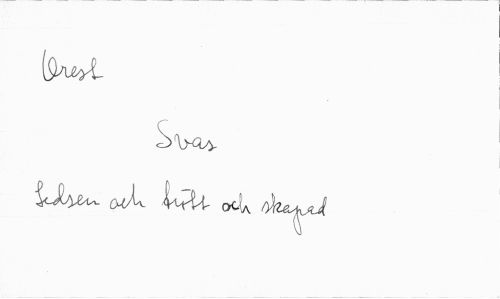 Orest
Svas
Ledsen och trött och skapad